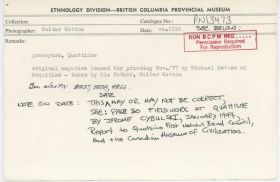 ETHNOLOGY DIVISION—BRITISH COLUMBIA PROVINCIAL MUSEUM
Collection:
Catalogue No.: PN13473
SEE BELOW:
Photographer: Walter Cotton
Date: ca.1910
Remarks:
NON BCPM NEG
Permission Required
For Reproduction
graveyard, Quattiche
original negative loaned for printing Nov./77 by Michael Cotton of
Coquitlam - taken by his father, Walter Cotton
See also
NOTE ON DATE: THIS MAY OR MAY NOT BE CORRECT,
SEE: PAR 30 FIELDWORK AT QUATSISHE
BY JEROME CYBULSKI, JANUARY 1997.
Report to Quatsino First Nations Band Council,
and the Canadian Museum of Civilization.